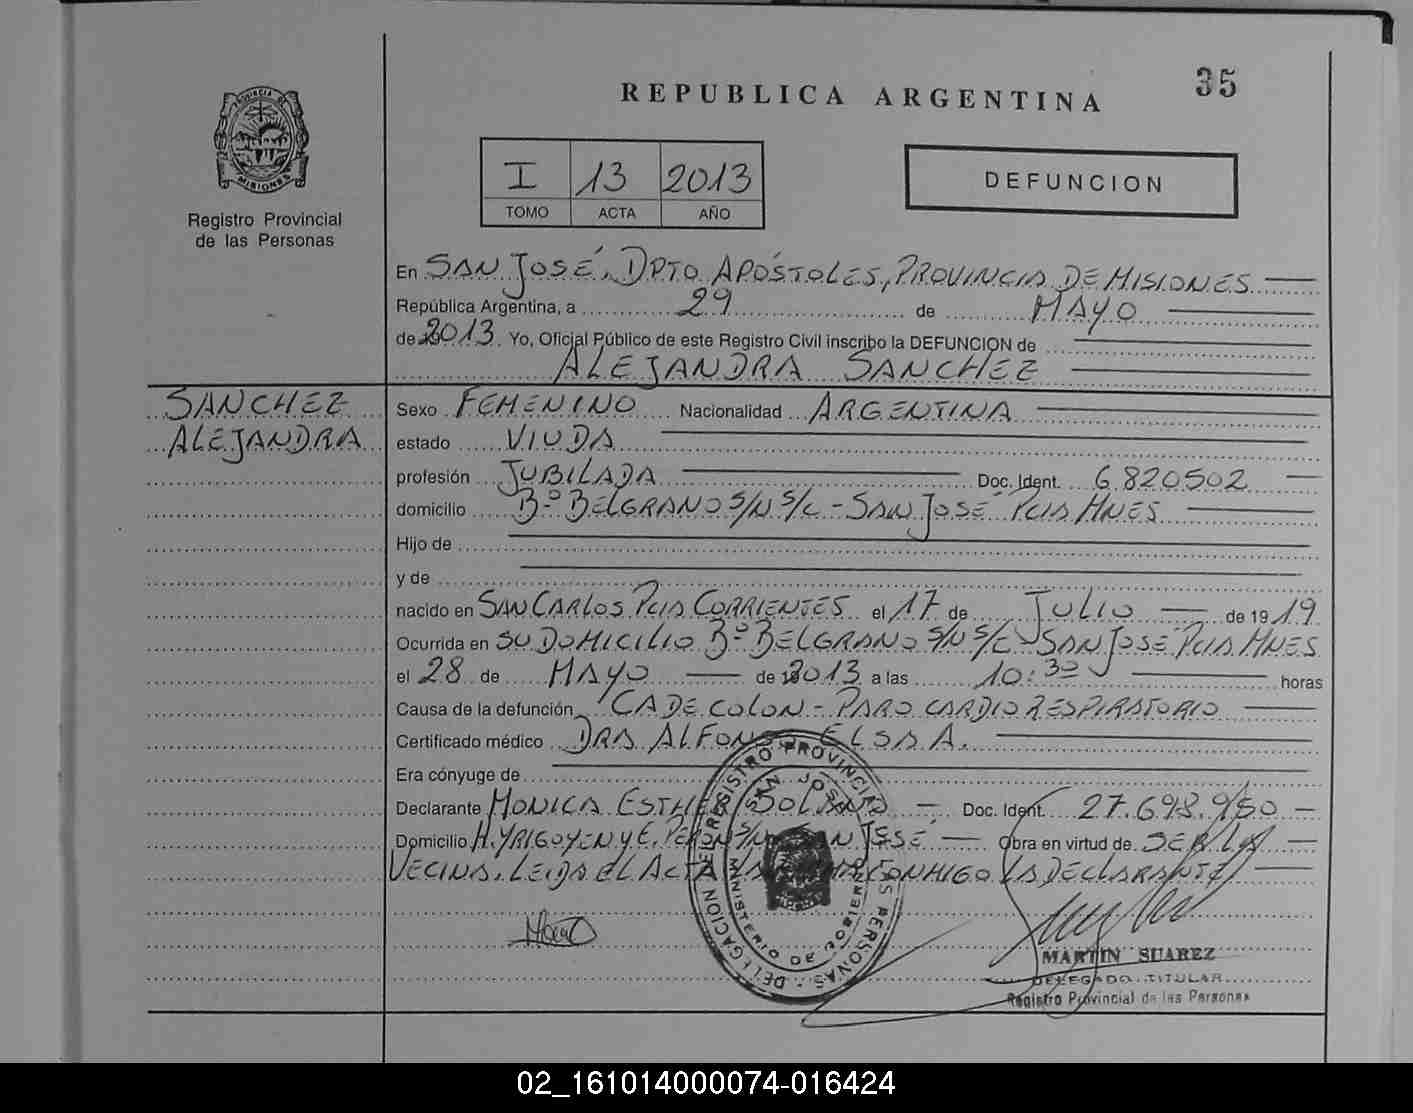 35
REPUBLICA ARGENTINA
PROVINCIA DE
MISIONES
Registro Provincial
de las Personas
I 13 2013
TOMO ACTA AÑO
DEFUNCION
En SAN JOSÉ, DPTO APÓSTOLES, PROVINCIA DE MISIONES
República Argentina, a 29 de MAYO
de 2013. Yo, Oficial Público de este Registro Civil inscribo la DEFUNCION de
ALEJANDRA SANCHEZ
SANCHEZ
ALEJANDRA
Sexo FEMENINO Nacionalidad ARGENTINA
estado VIUDA
profesión JUBILADA Doc. Ident. 6820502
domicilio Bº BELGRANO S/N S/C - SAN JOSÉ PCIA MNES
Hijo de
y de
nacido en SAN CARLOS PCIA CORRIENTES el 17 de JULIO de 1919
Ocurrida en SU DOMICILIO Bº BELGRANO S/N S/C SAN JOSÉ PCIA MNES
el 28 de MAYO de 2013 a las 10:30 horas
Causa de la defunción CA DE COLON - PARO CARDIORESPIRATORIO
Certificado médico DRA ALFONSO ELSA A.
Era cónyuge de
Declarante MONICA ESTHER Doc. Ident. 27.698.950
Domicilio H. YRIGOYEN Y E. PERON S/N SAN JOSÉ Obra en virtud de SER LA
VECINA. LEIDA EL ACTA CONMIGO LA DECLARANTE
DELEGACION DEL REGISTRO PROVINCIAL DE LAS PERSONAS
SAN JOSE
MINISTERIO DE GOBIERNO
MARTIN SUAREZ
DELEGADO TITULAR
Registro Provincial de las Personas
02_161014000074-016424